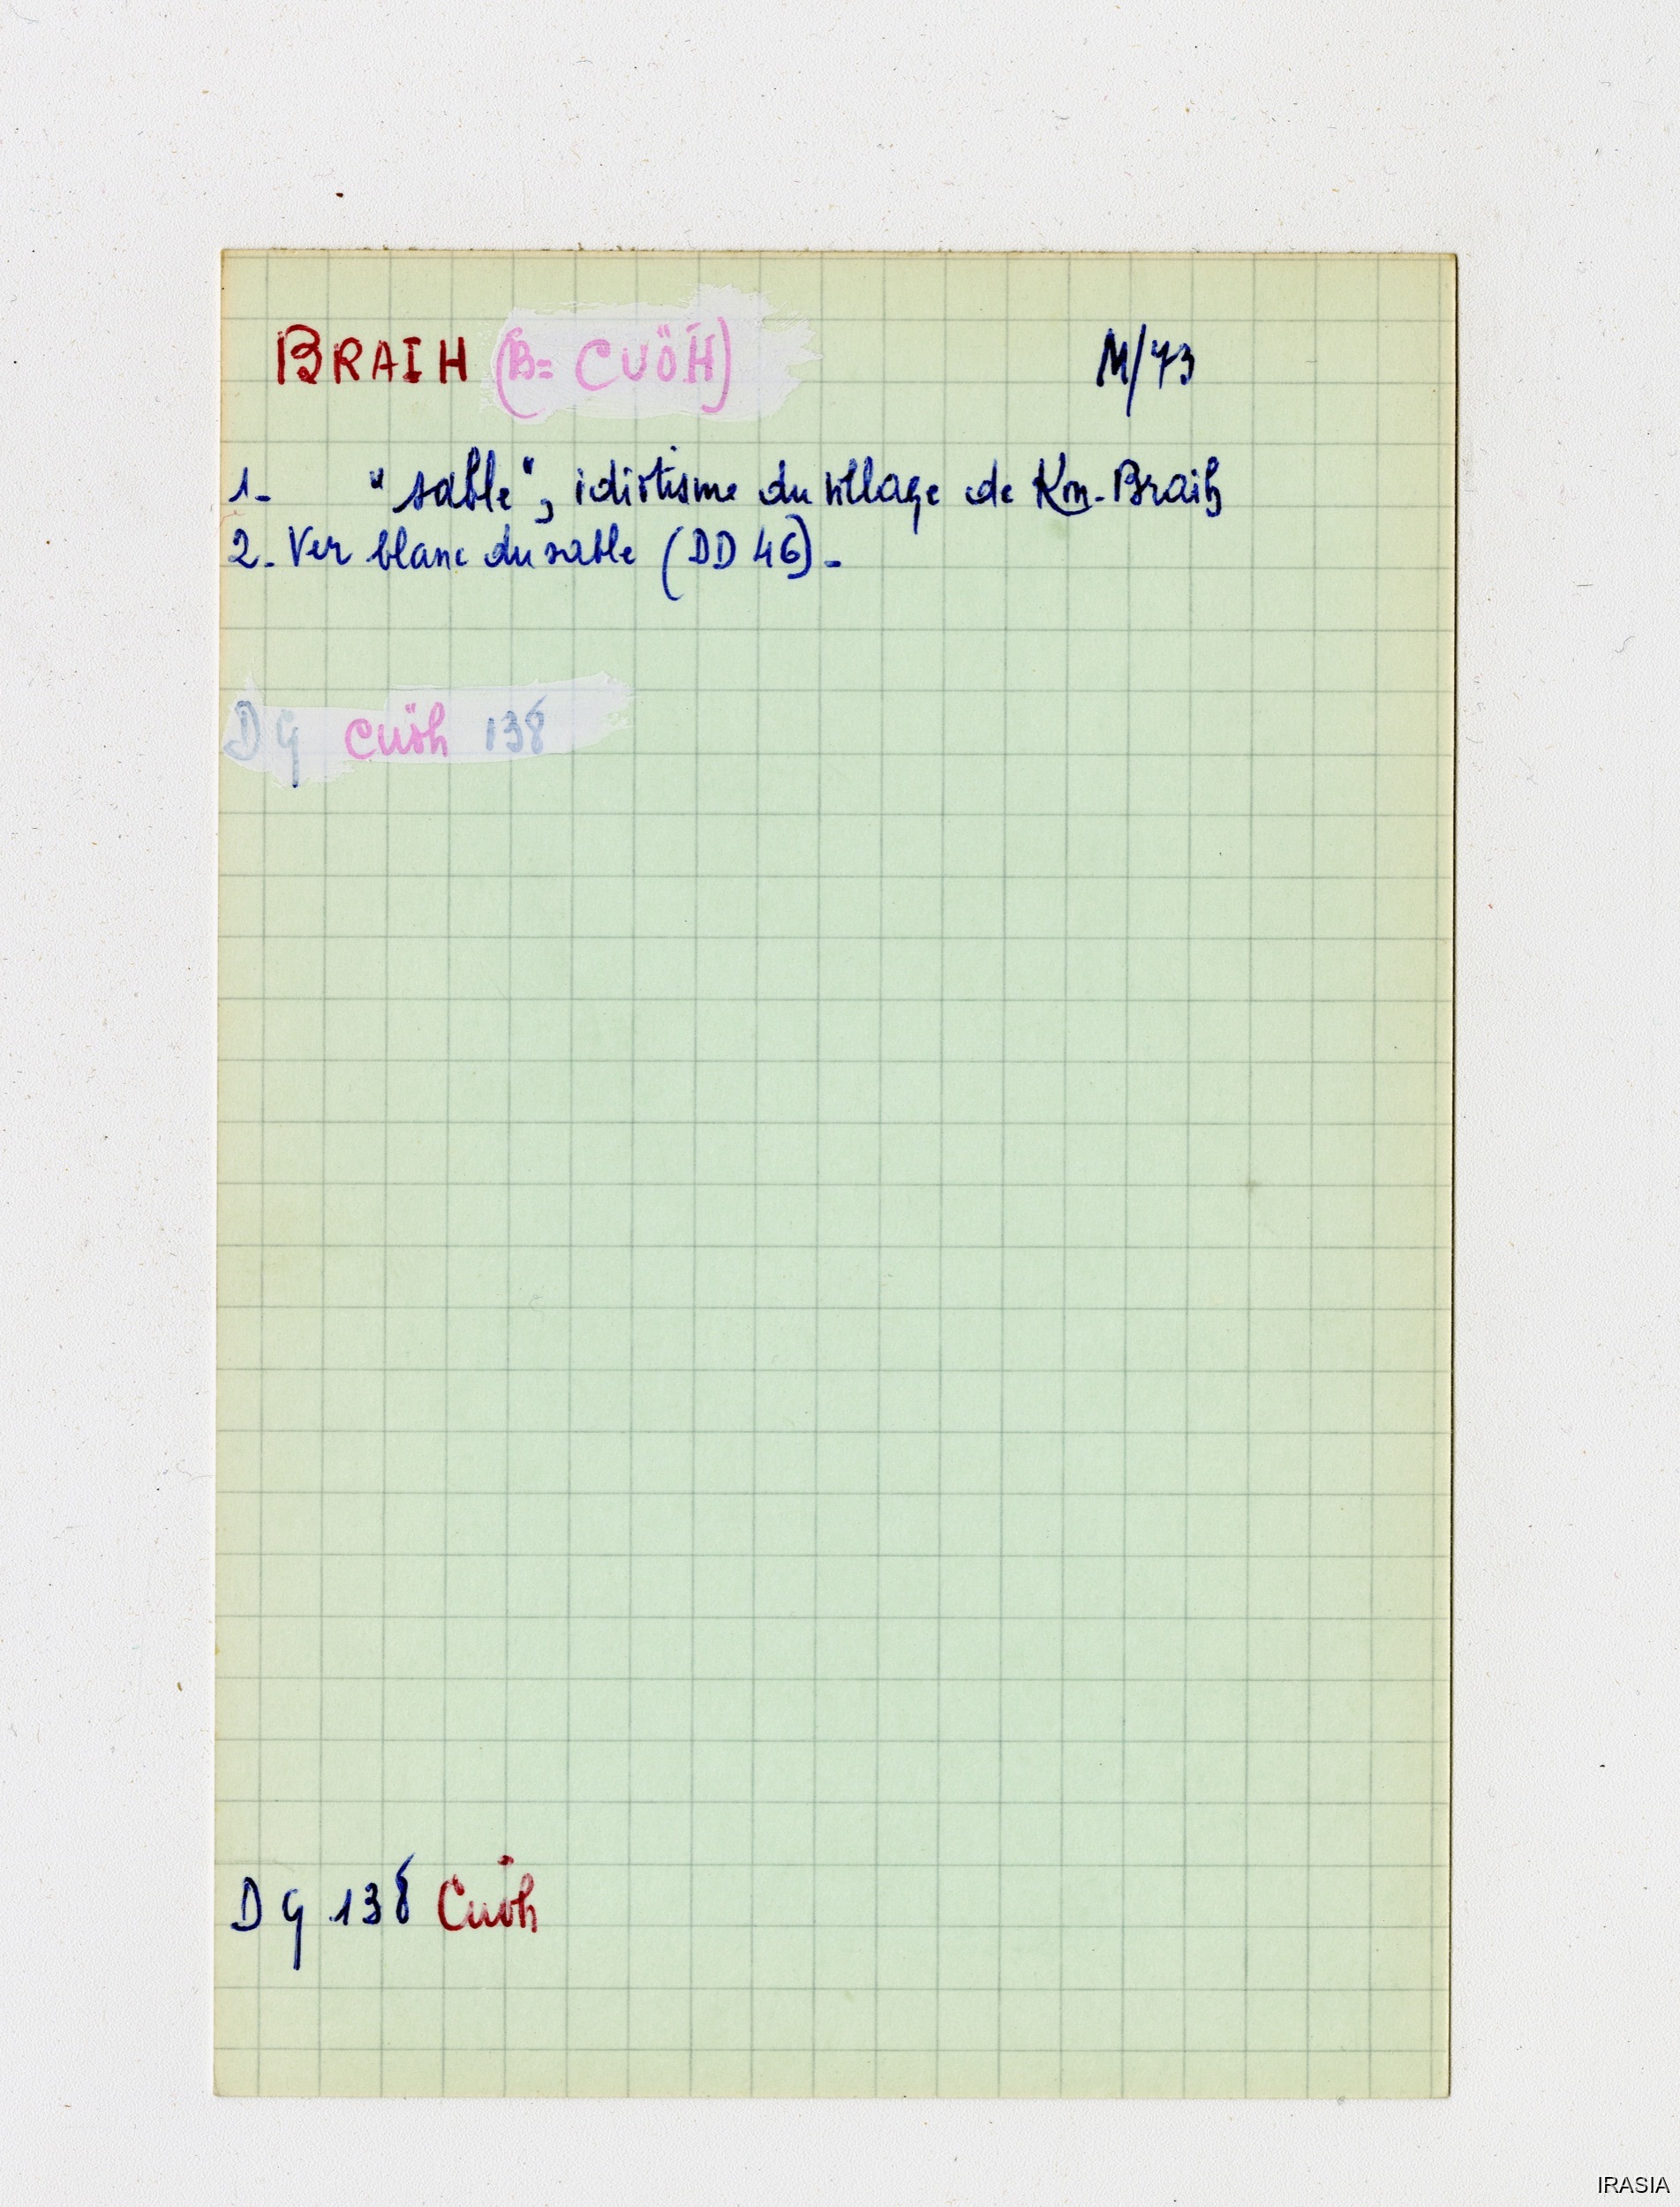 BRAIH (B= CUÖH) M/73
1- "sable", idiotisme du village de Kon-Braih
2- Ver blanc du sable (DD 46)-
DG cuöh 138
DG 138 Cuöh
IRASIA